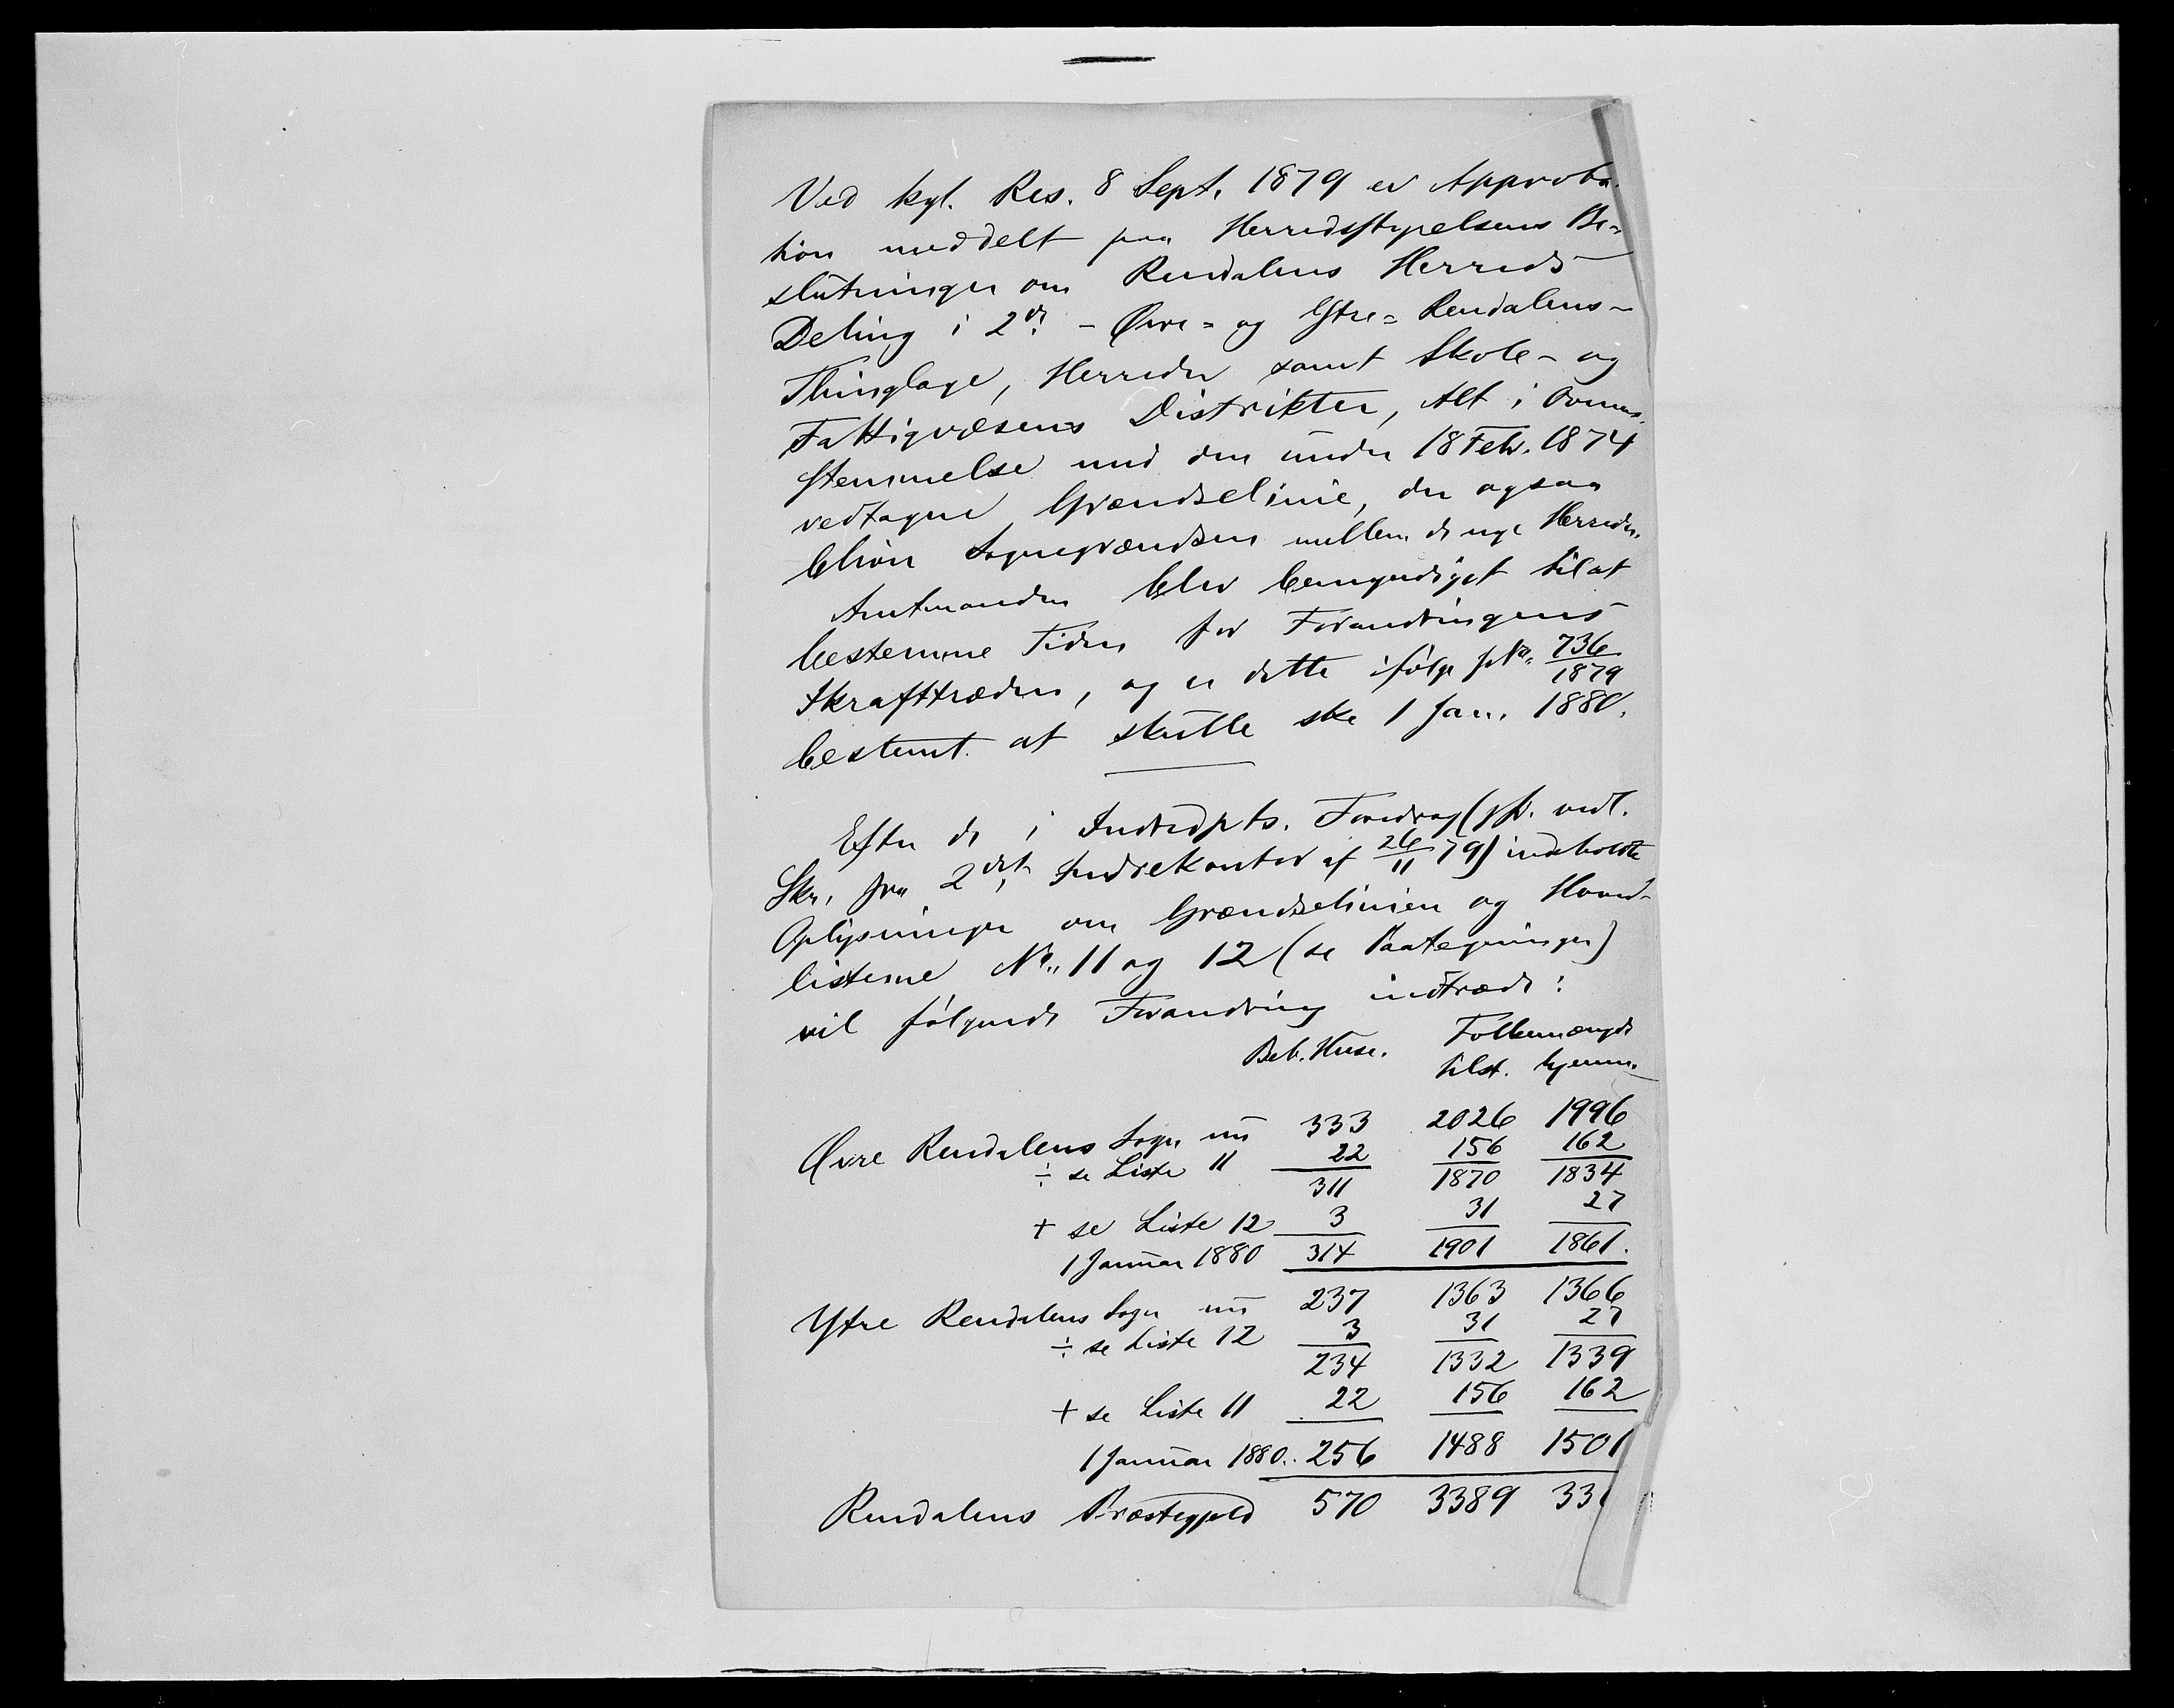 Ved kgl. Res. 8 Sept. 1879 er Approba-
tion meddelt paa Herredsstyrelsens Be-
slutninger om Rendalens Herreds
Deling i 2de - Øvre= og Ytre= Rendalens -
Thinglage, Herreder samt Skole- og
Fattigvæsens Distrikter, Alt i Overens-
stemmelse med den under 18 Febr. 1874
vedtagne Grændselinie, der ogsaa
bliver Sognegrændsen mellem de nye Herreder.
Amtmanden blev bemyndiget til at
bestemme Tiden for Forandringens
Ikrafttræden, og er dette ifølge No. 736/1879
bestemt at skulle ske 1 Jan. 1880.
Efter de i Indredpts. Foredrag (jfr. vedl.
Skr. fra 2det Indrekontor af 26/11 79) indeholdte
Oplysninger om Grændselinien og Hoved-
listerne No. 11 og 12 (se Paategninger)
vil følgende Forandring indtræde:
Beb. Huse. Folkemængde
tilst. hjemm.
Øvre Rendalens Sogn nu 333 2026 1996
÷ se Liste 11 22 156 162
311 1870 1834
+ se Liste 12 3 31 27
1 Januar 1880 314 1901 1861.
Ytre Rendalens Sogn nu 237 1363 1366
÷ se Liste 12 3 31 27
234 1332 1339
+ se Liste 11 22 156 162
1 Januar 1880.. 256 1488 1501
Rendalens Præstegjeld 570 3389 33